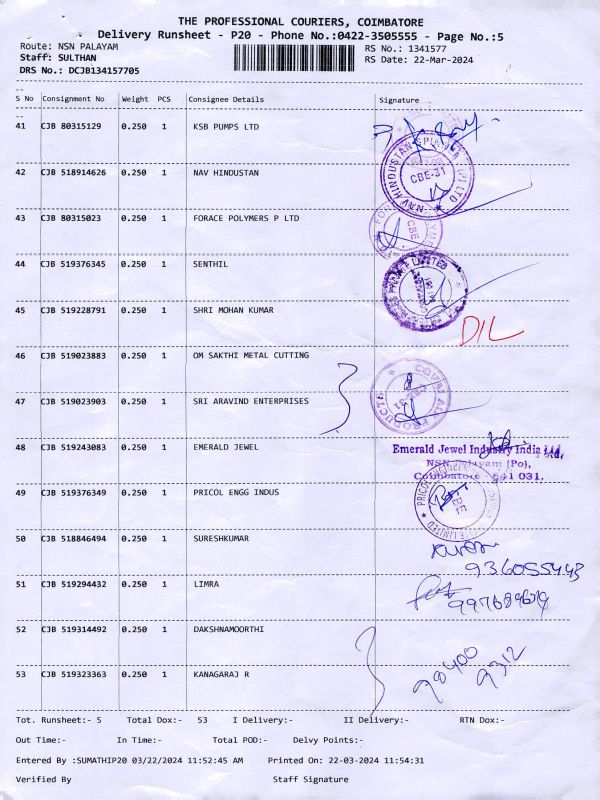 THE PROFESSIONAL COURIERS, COIMBATORE
Delivery Runsheet - P20 - Phone No.:0422-3505555 - Page No.:5
Route: NSN PALAYAM RS No.: 1341577
Staff: SULTHAN RS Date: 22-Mar-2024
DRS No.: DCJB134157705
S No Consignment No Weight PCS Consignee Details Signature
41 CJB 80315129 0.250 1 KSB PUMPS LTD
42 CJB 518914626 0.250 1 NAV HINDUSTAN
NAV HINDUSTAN SPINNER (P) LTD
CBE-31
43 CJB 80315023 0.250 1 FORACE POLYMERS P LTD
CBE
44 CJB 519376345 0.250 1 SENTHIL
45 CJB 519228791 0.250 1 SHRI MOHAN KUMAR
DIL
46 CJB 519023883 0.250 1 OM SAKTHI METAL CUTTING
47 CJB 519023903 0.250 1 SRI ARAVIND ENTERPRISES
PRODUCTS
48 CJB 519243083 0.250 1 EMERALD JEWEL
Emerald Jewel Industry India Ltd,
NSN Palayam (Po),
Coimbatore - 641 031.
49 CJB 519376349 0.250 1 PRICOL ENGG INDUS
PRICOL LIMITED
CBE
50 CJB 518846494 0.250 1 SURESHKUMAR
936055443
51 CJB 519294432 0.250 1 LIMRA
52 CJB 519314492 0.250 1 DAKSHNAMOORTHI
98400
9312
53 CJB 519323363 0.250 1 KANAGARAJ R
Tot. Runsheet:- 5 Total Dox:- 53 I Delivery:- II Delivery:- RTN Dox:-
Out Time:- In Time:- Total POD:- Delvy Points:-
Entered By :SUMATHIP20 03/22/2024 11:52:45 AM Printed On: 22-03-2024 11:54:31
Verified By Staff Signature